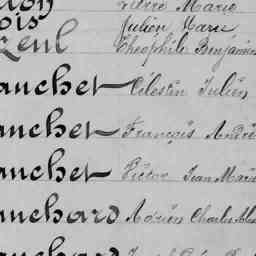 Pierre Marie
ois Julien Marie
Théophile Benjamin
anchet Célestin Julien
anchet François André
anchet Victor Jean Marie
anchard Adrien Charles
anchard